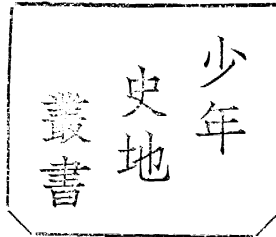 少年
史地
叢書